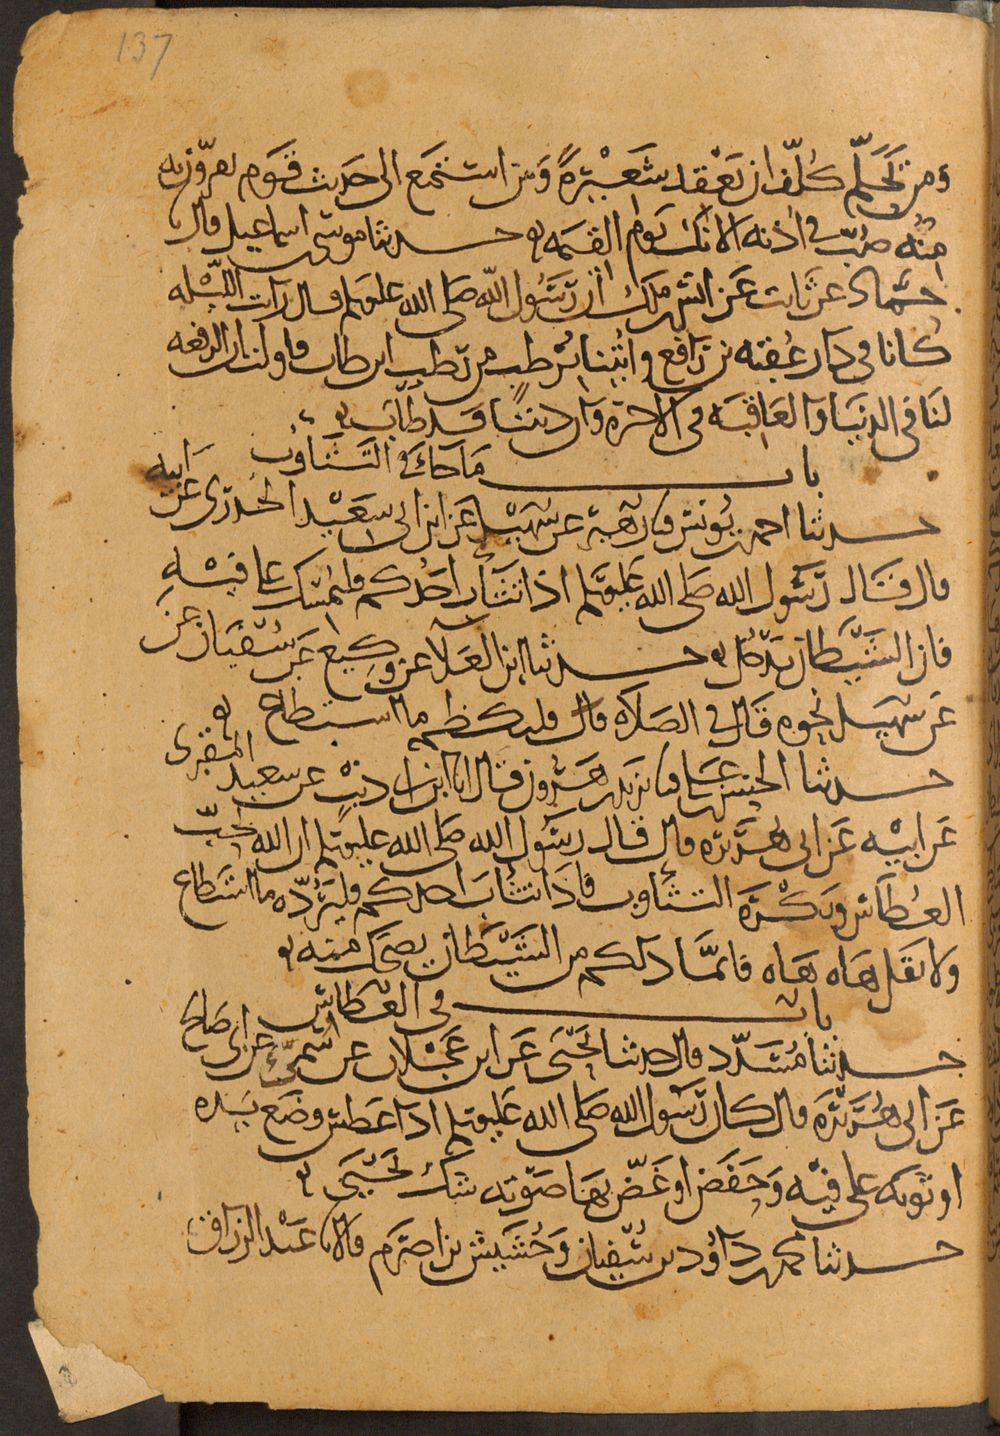 137
ومن تحلّم كُلّف ان يَعْقد شَعْيرةً وَمن استمَع الى حَديث قَوم يفرّون به
منهُ صُبّ في اذنه الانك يَوم القيمه حدثنا موسى اسماعيل قال
حمّاد عن ثابت عَن انس بن ملك ان رَسُول الله صَلى الله عليه وسلم قال رَات اللّيْله
كانا في دار عُقبة بن رَافع واُتينا برُطب من رُطب ابن طاب فاولت ان الرفعه
لنَا في الدنيَا وَالعَاقبَه في الاخرة وَان ديننَا قد طَابَ
باب مَا جَاء في التَّثَاوُب
حدثنا احمد بن يُونس قال زهير عن سُهَيْل عَن ابن ابى سَعيْد الخُدرّى عَن ابيه
قال قَال رَسُول الله صَلى الله عَليه وسلم اذا تثَأب احَدُكم فليُمسِك على فيْهِ
فان الشَيْطان يَدخُل حدثنا ابن العَلآ عن وكيع عَن سُفيَان عَن
عَن سهَيل نحوه قَال في الصَلاه قال فليكظم ما استطاع
حدثنا الحسن بن علي قال يزيد بن هَرُون قال انا ابن ابي ذيبٍ عن سعيد المقبرى
عَن ابيْه عَن ابى هُرَيْرَه قال قَال رسُول الله صَلى الله عليه وسلم ان الله يحبّ
العُطاس ويَكْرَه التثَاوب فاذَا تثَأبَ احدكم فليَرُدّه ما استطاع
وَلا يقَل هَاه هَاه فانمَّا ذلكم من الشَيْطان يضحَك منه
باب في العُطاس
حدثنا مُسَدّد قال حدثنا يَحْيَى عَن ابن عَجْلان عن سُمَىّ عَن ابى صَالح
عَن ابى هُرَيْرَه قال كان رَسُول الله صَلى الله عَليه وسلم اذا عَطس وضَع يَده
او ثَوبَه على فيْه وَخَفَض او غَضّ بهَا صَوْتَه شك يَحْيَى
حدثنا محمد بن داوُد بن سُفيان وَخُشَيْش بن اصرَم قالا نا عَبْد الرزاق